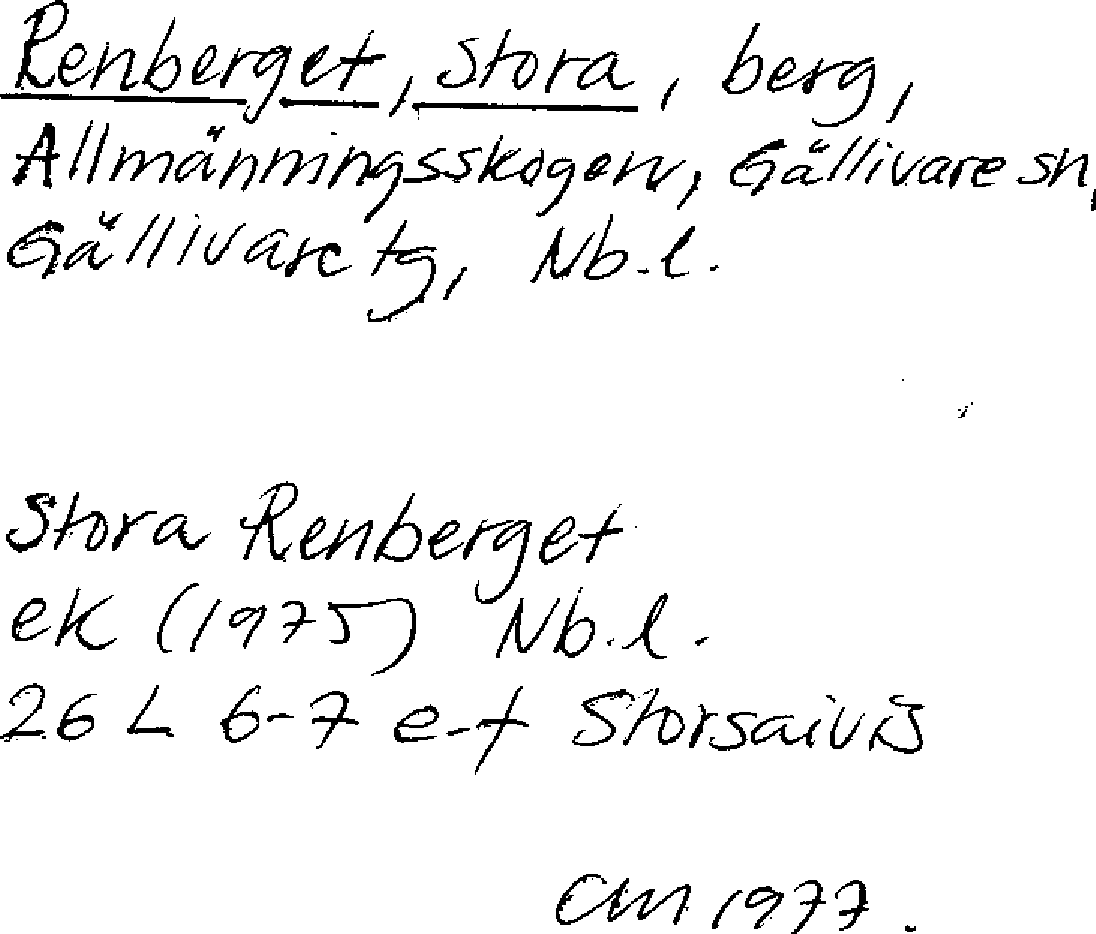 Renberget, Stora, berg,
Allmänningsskogen, Gällivare sn,
Gällivare tg, Nb.l.
Stora Renberget
ek (1975) Nb.l.
26 L 6-7 e-f Storsaivis
CM 1977.